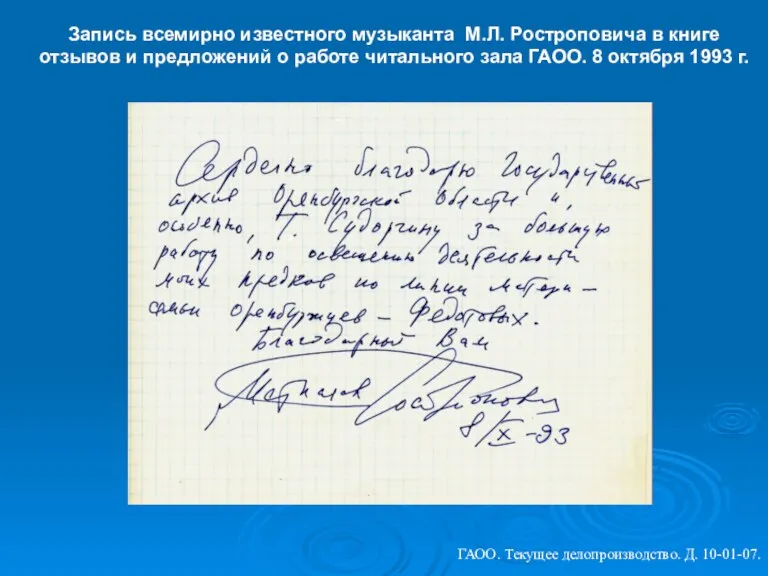 Запись всемирно известного музыканта М.Л. Ростроповича в книге
отзывов и предложений о работе читального зала ГАОО. 8 октября 1993 г.
Сердечно благодарю Государственный
архив Оренбургской области и,
особенно, Т. Судоргину за большую
работу по освещению деятельности
моих предков по линии матери –
семьи оренбуржцев – Федотовых.
Благодарный Вам
Мстислав Ростропович
8/X -93
ГАОО. Текущее делопроизводство. Д. 10-01-07.